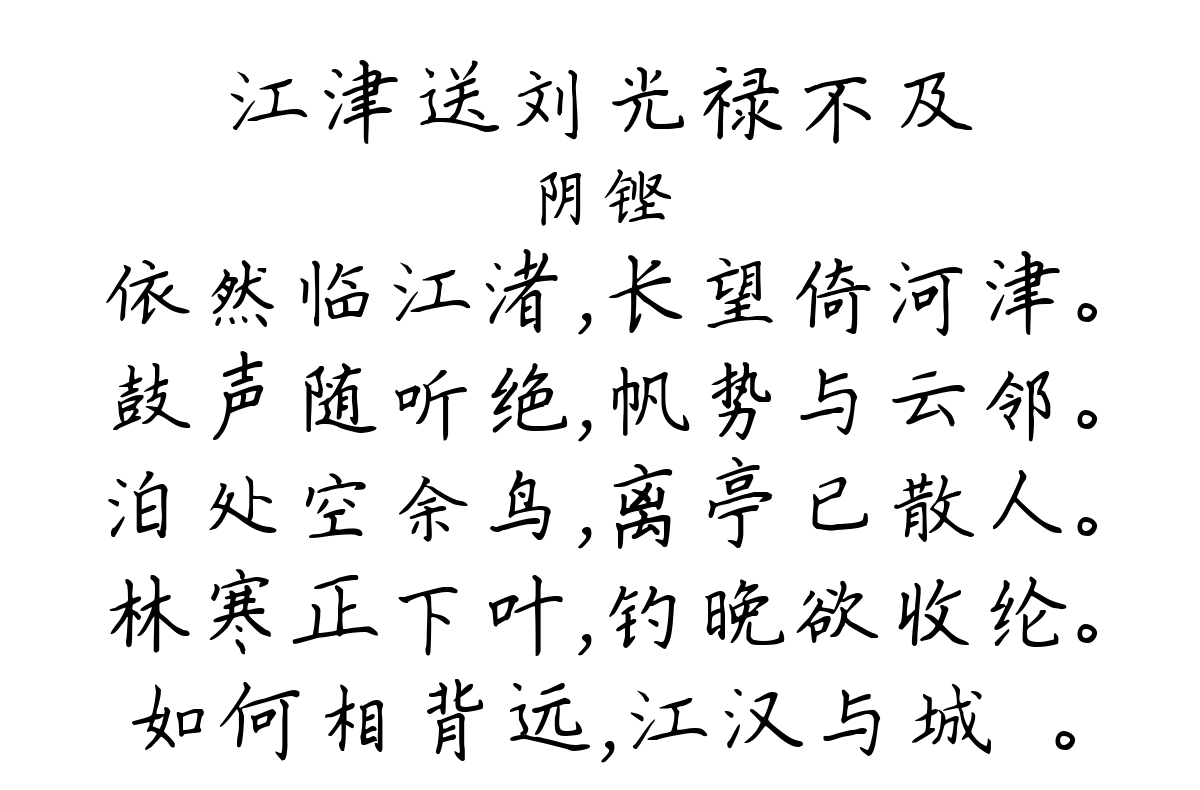 江津送刘光禄不及
阴铿
依然临江渚,长望倚河津。
鼓声随听绝,帆势与云邻。
泊处空余鸟,离亭已散人。
林寒正下叶,钓晚欲收纶。
如何相背远,江汉与城 。